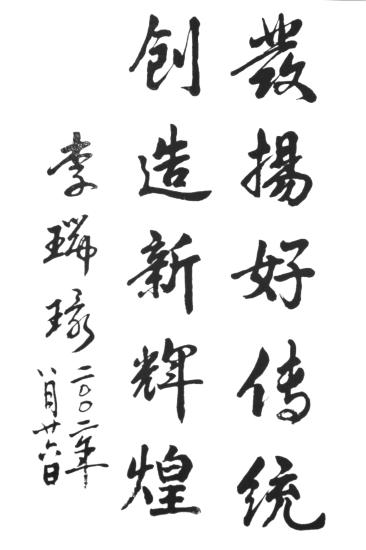 發揚好传统
创造新辉煌
李瑞环
二〇〇二年
八月廿六日